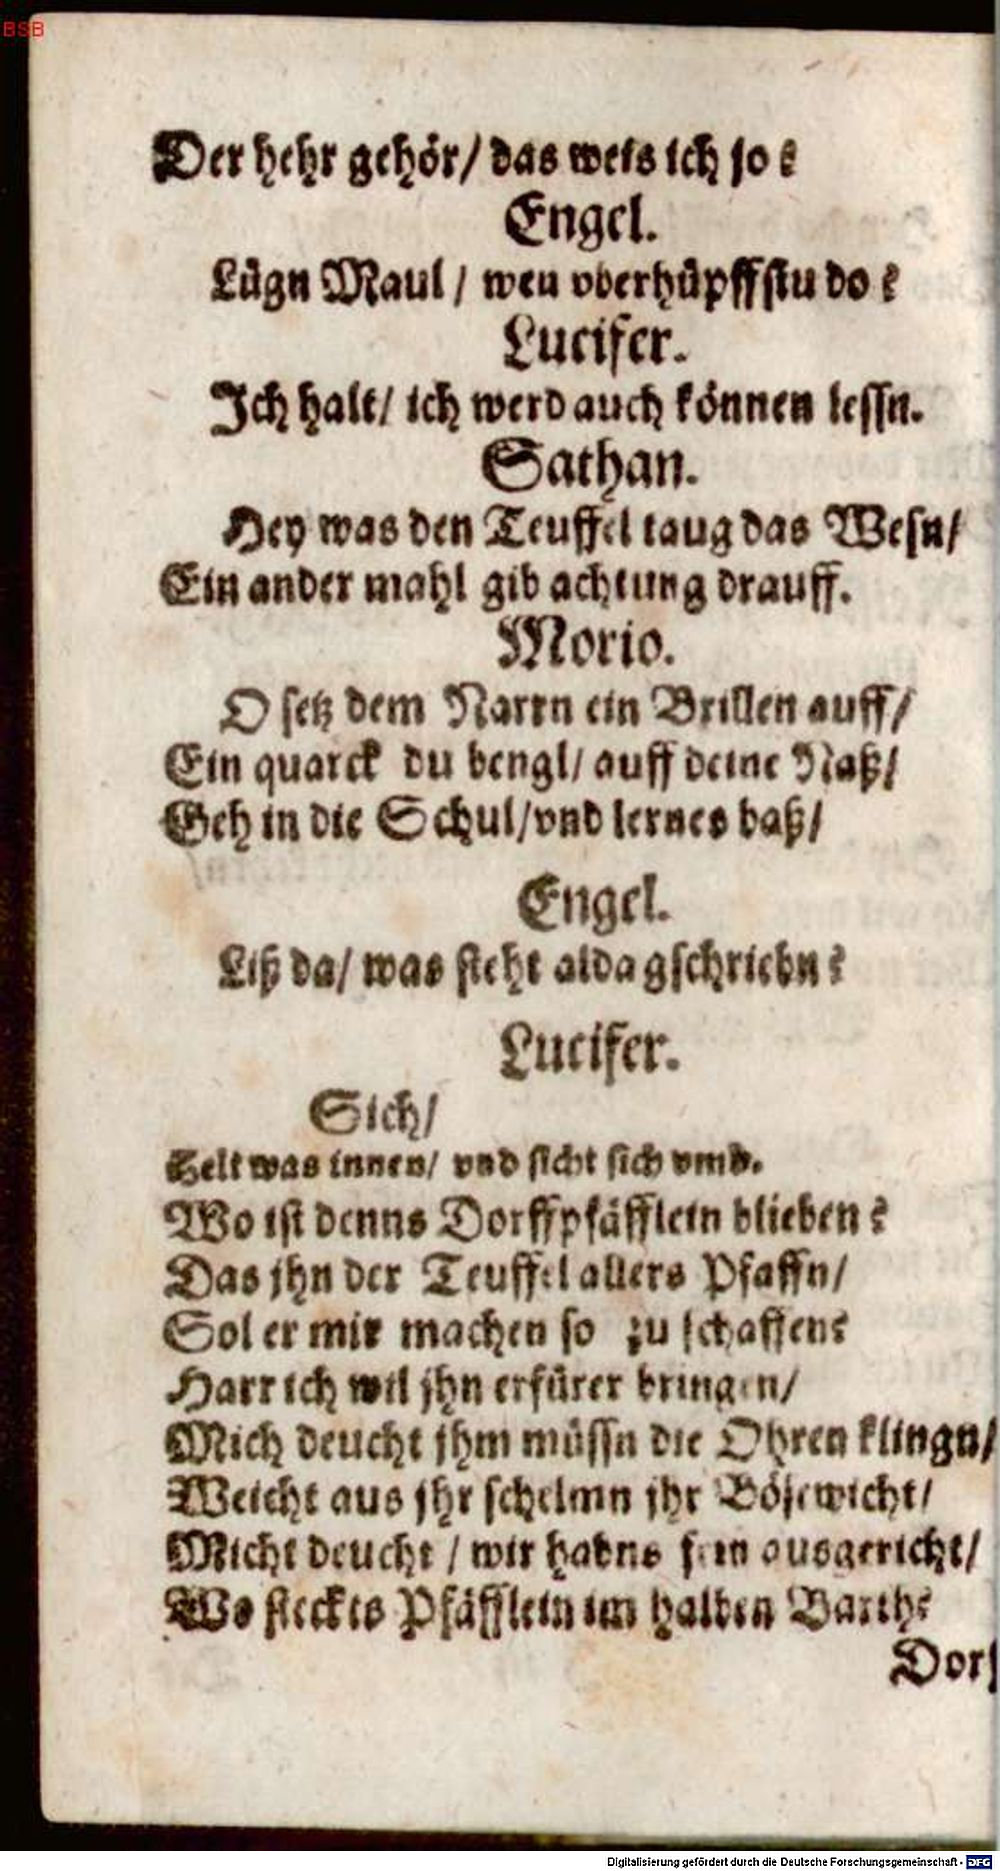 BSB
Der hehr gehör/ das weis ich jo?
Engel.
Lügn Maul/ wen vberhüpffstu do?
Lucifer.
Ich halt/ ich werd auch können lessn.
Sathan.
Hey was den Teuffel taug das Wesn/
Ein ander mahl gib achtung drauff.
Morio.
O setz dem Narrn ein Brillen auff/
Ein quarck du bengl/ auff deine Naß/
Geh in die Schul/ vnd lernes baß/
Engel.
Liß da/ was steht alda gschriebn?
Lucifer.
Sich/
Helt was innen/ vnd sicht sich vmb.
Wo ist denns Dorffpfäfflein blieben?
Das jhn der Teuffel allers Pfaffn/
Sol er mir machen so zu schaffen?
Harr ich wil jhn erfürer bringen/
Mich deucht jhm müssn die Ohren klingn/
Weicht aus jhr schelmn jhr Bösewicht/
Micht deucht/ wir habns fein ausgericht/
Wo steckts Pfäfflein im halben Barth?
Dorf
Digitalisierung gefördert durch die Deutsche Forschungsgemeinschaft - DFG